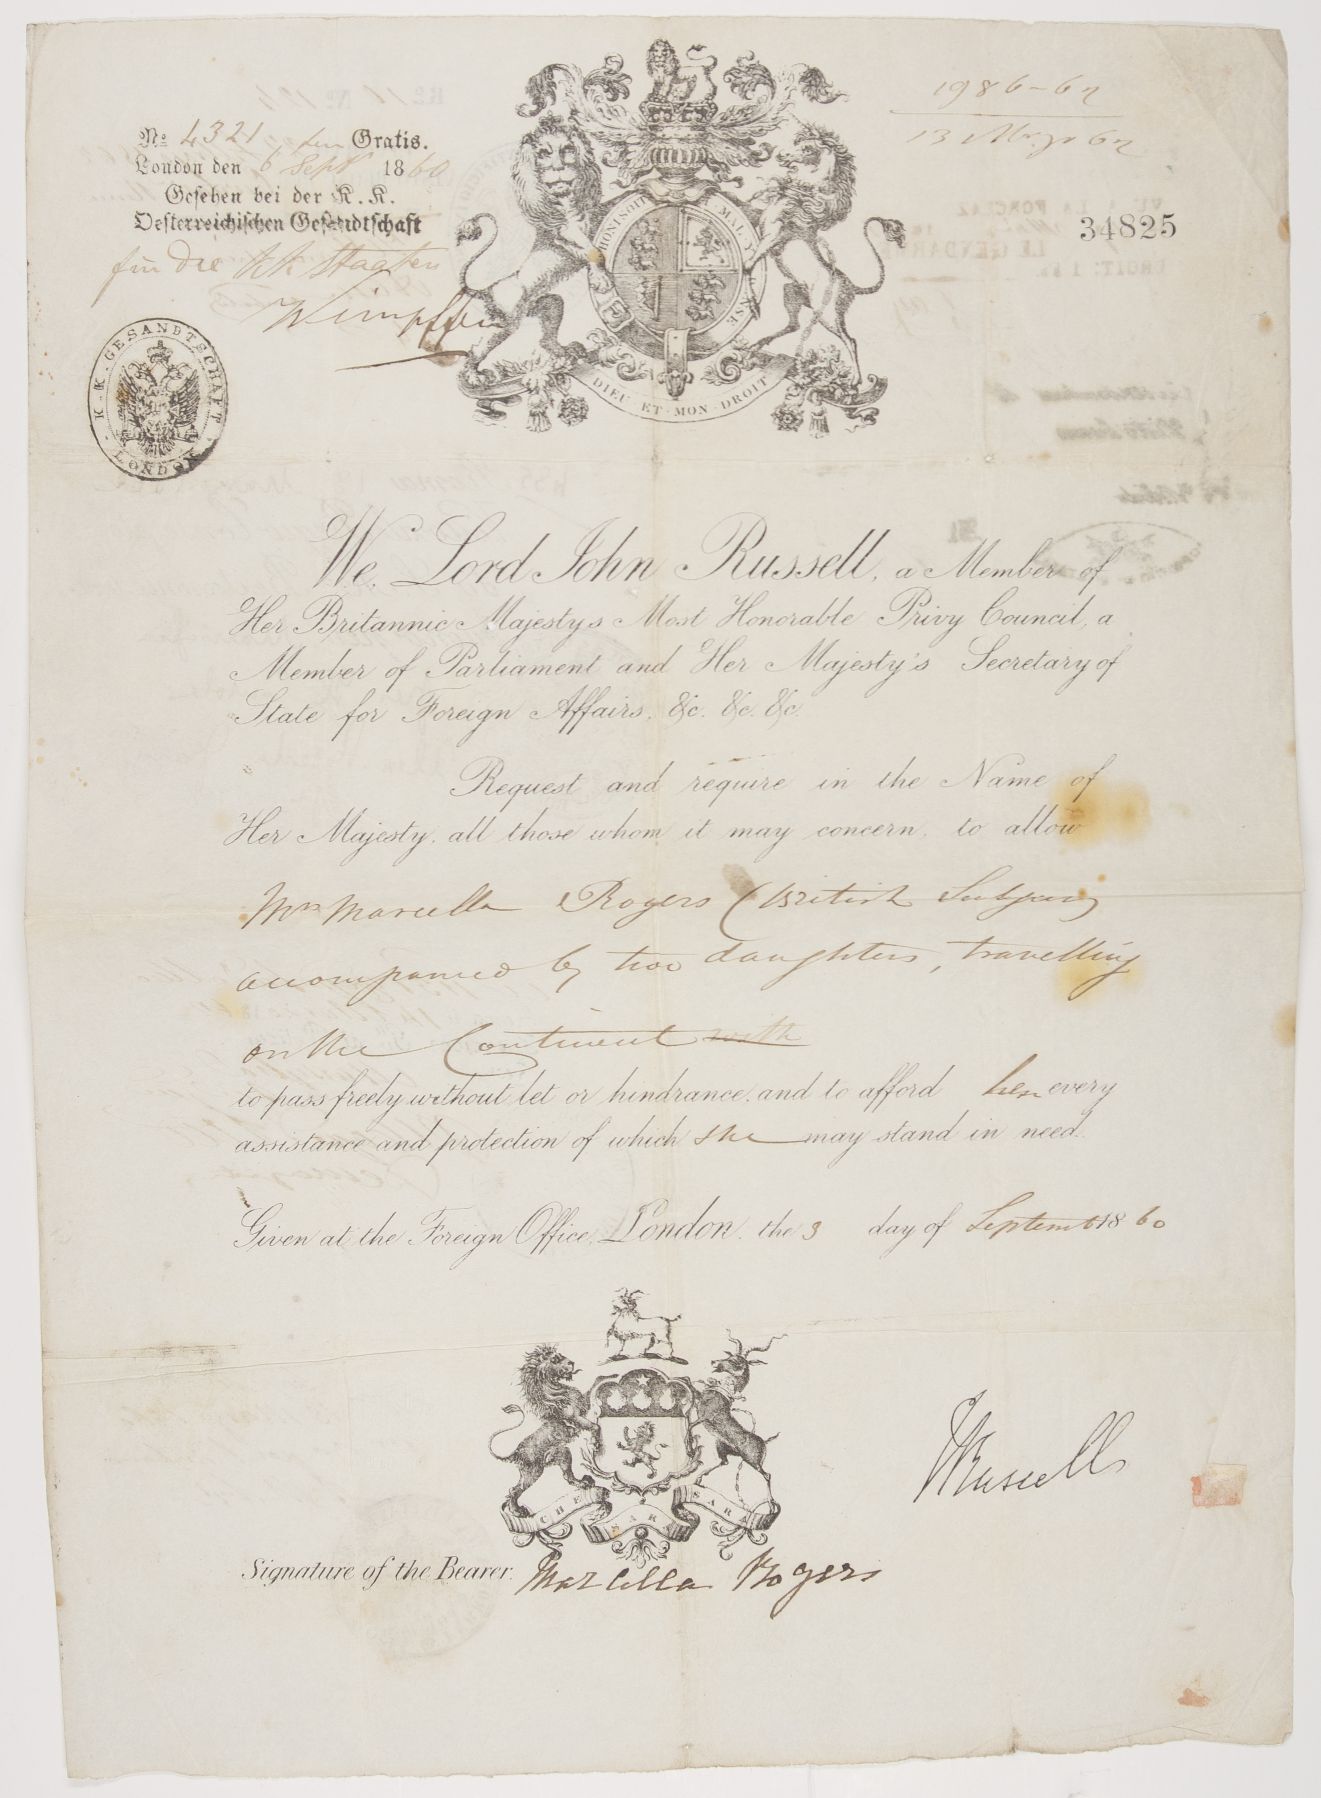 1986-62
13 Marzo 62
34825
No. 4321 Gratis.
London den 6 Sept 1860
Gesehen bei der K. K.
Oesterreichischen Gesandtschaft
für die KK Staaten
Wimpffen
K. K. GESANDTSCHAFT
LONDON
HONI SOIT QUI MAL Y PENSE
DIEU ET MON DROIT
We, Lord John Russell, a Member of
Her Britannic Majestys Most Honorable Privy Council, a
Member of Parliament and Her Majesty's Secretary of
State for Foreign Affairs, &c. &c. &c.
Request and require in the Name of
Her Majesty, all those whom it may concern, to allow
Mrs Marcella Rogers (British Subject)
accompanied by two daughters, travelling
on the Continent with
to pass freely without let or hindrance, and to afford her every
assistance and protection of which she may stand in need.
Given at the Foreign Office, London, the 3 day of Septemb 1860
CHE SARA SARA
JRussell
Signature of the Bearer. Marcella Rogers